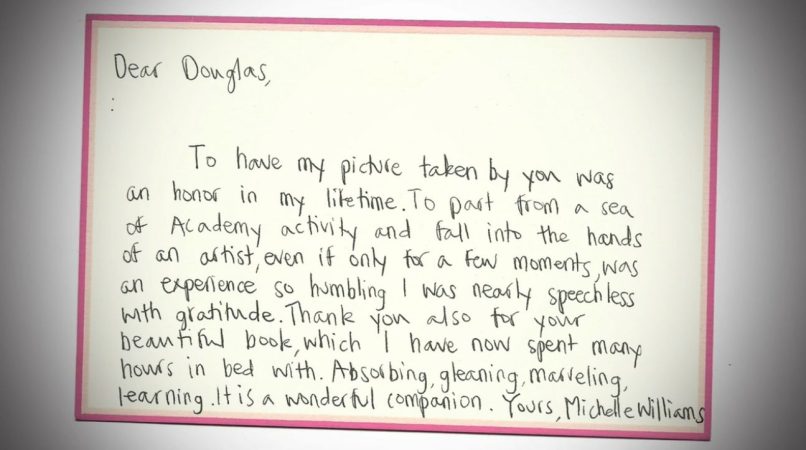 Dear Douglas,
:
To have my picture taken by you was
an honor in my lifetime. To part from a sea
of Academy activity and fall into the hands
of an artist, even if only for a few moments, was
an experience so humbling I was nearly speechless
with gratitude. Thank you also for your
beautiful book, which I have now spent many
hours in bed with. Absorbing, gleaning, marveling,
learning. It is a wonderful companion. Yours, Michelle Williams